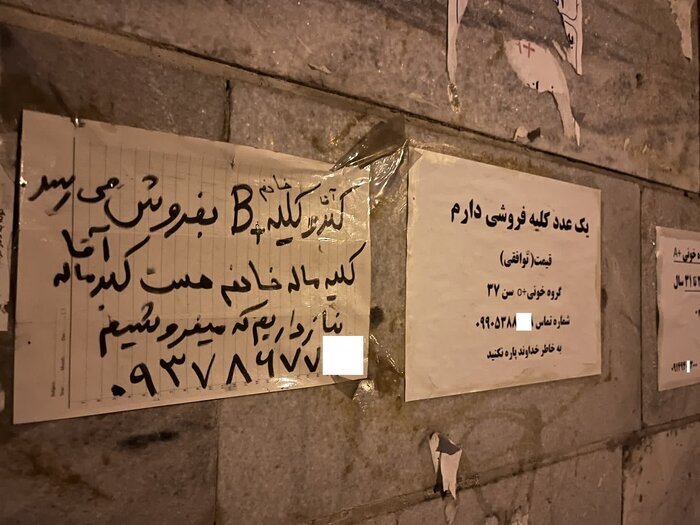 خانم آقا
کبد و کلیه B+ بفروش می رسد
کلیه ماله خانم هست کبد ماله آقا
نیاز داریم که میفروشیم
۰۹۳۷۸۹۷۷
یک عدد کلیه فروشی دارم
قیمت(توافقی)
گروه خونی+o سن ۳۷
شماره تماس ۰۹۹۰۵۳۸۸
به خاطر خداوند پاره نکنید
خونی A+
۳۱ سال